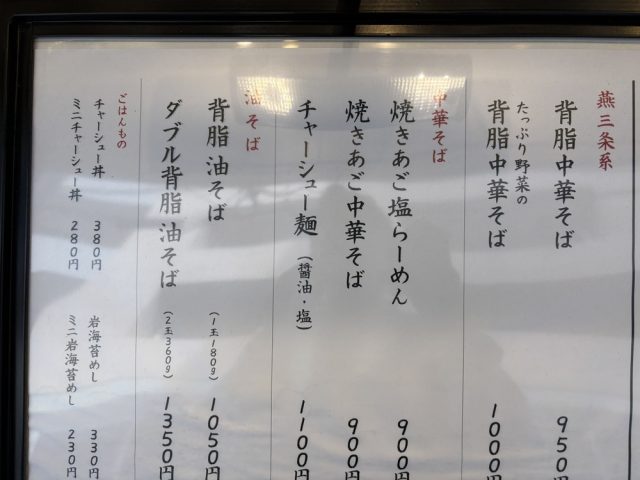 燕三条系
背脂中華そば 950円
たっぷり野菜の
背脂中華そば 1000円
中華そば
焼きあご塩らーめん 900円
焼きあご中華そば 900円
チャーシュー麺 (醤油・塩) 1100円
油そば
背脂油そば (1玉180g) 1050円
ダブル背脂油そば (2玉360g) 1350円
ごはんもの
チャーシュー丼 380円 岩海苔めし 330円
ミニチャーシュー丼 280円 ミニ岩海苔めし 230円